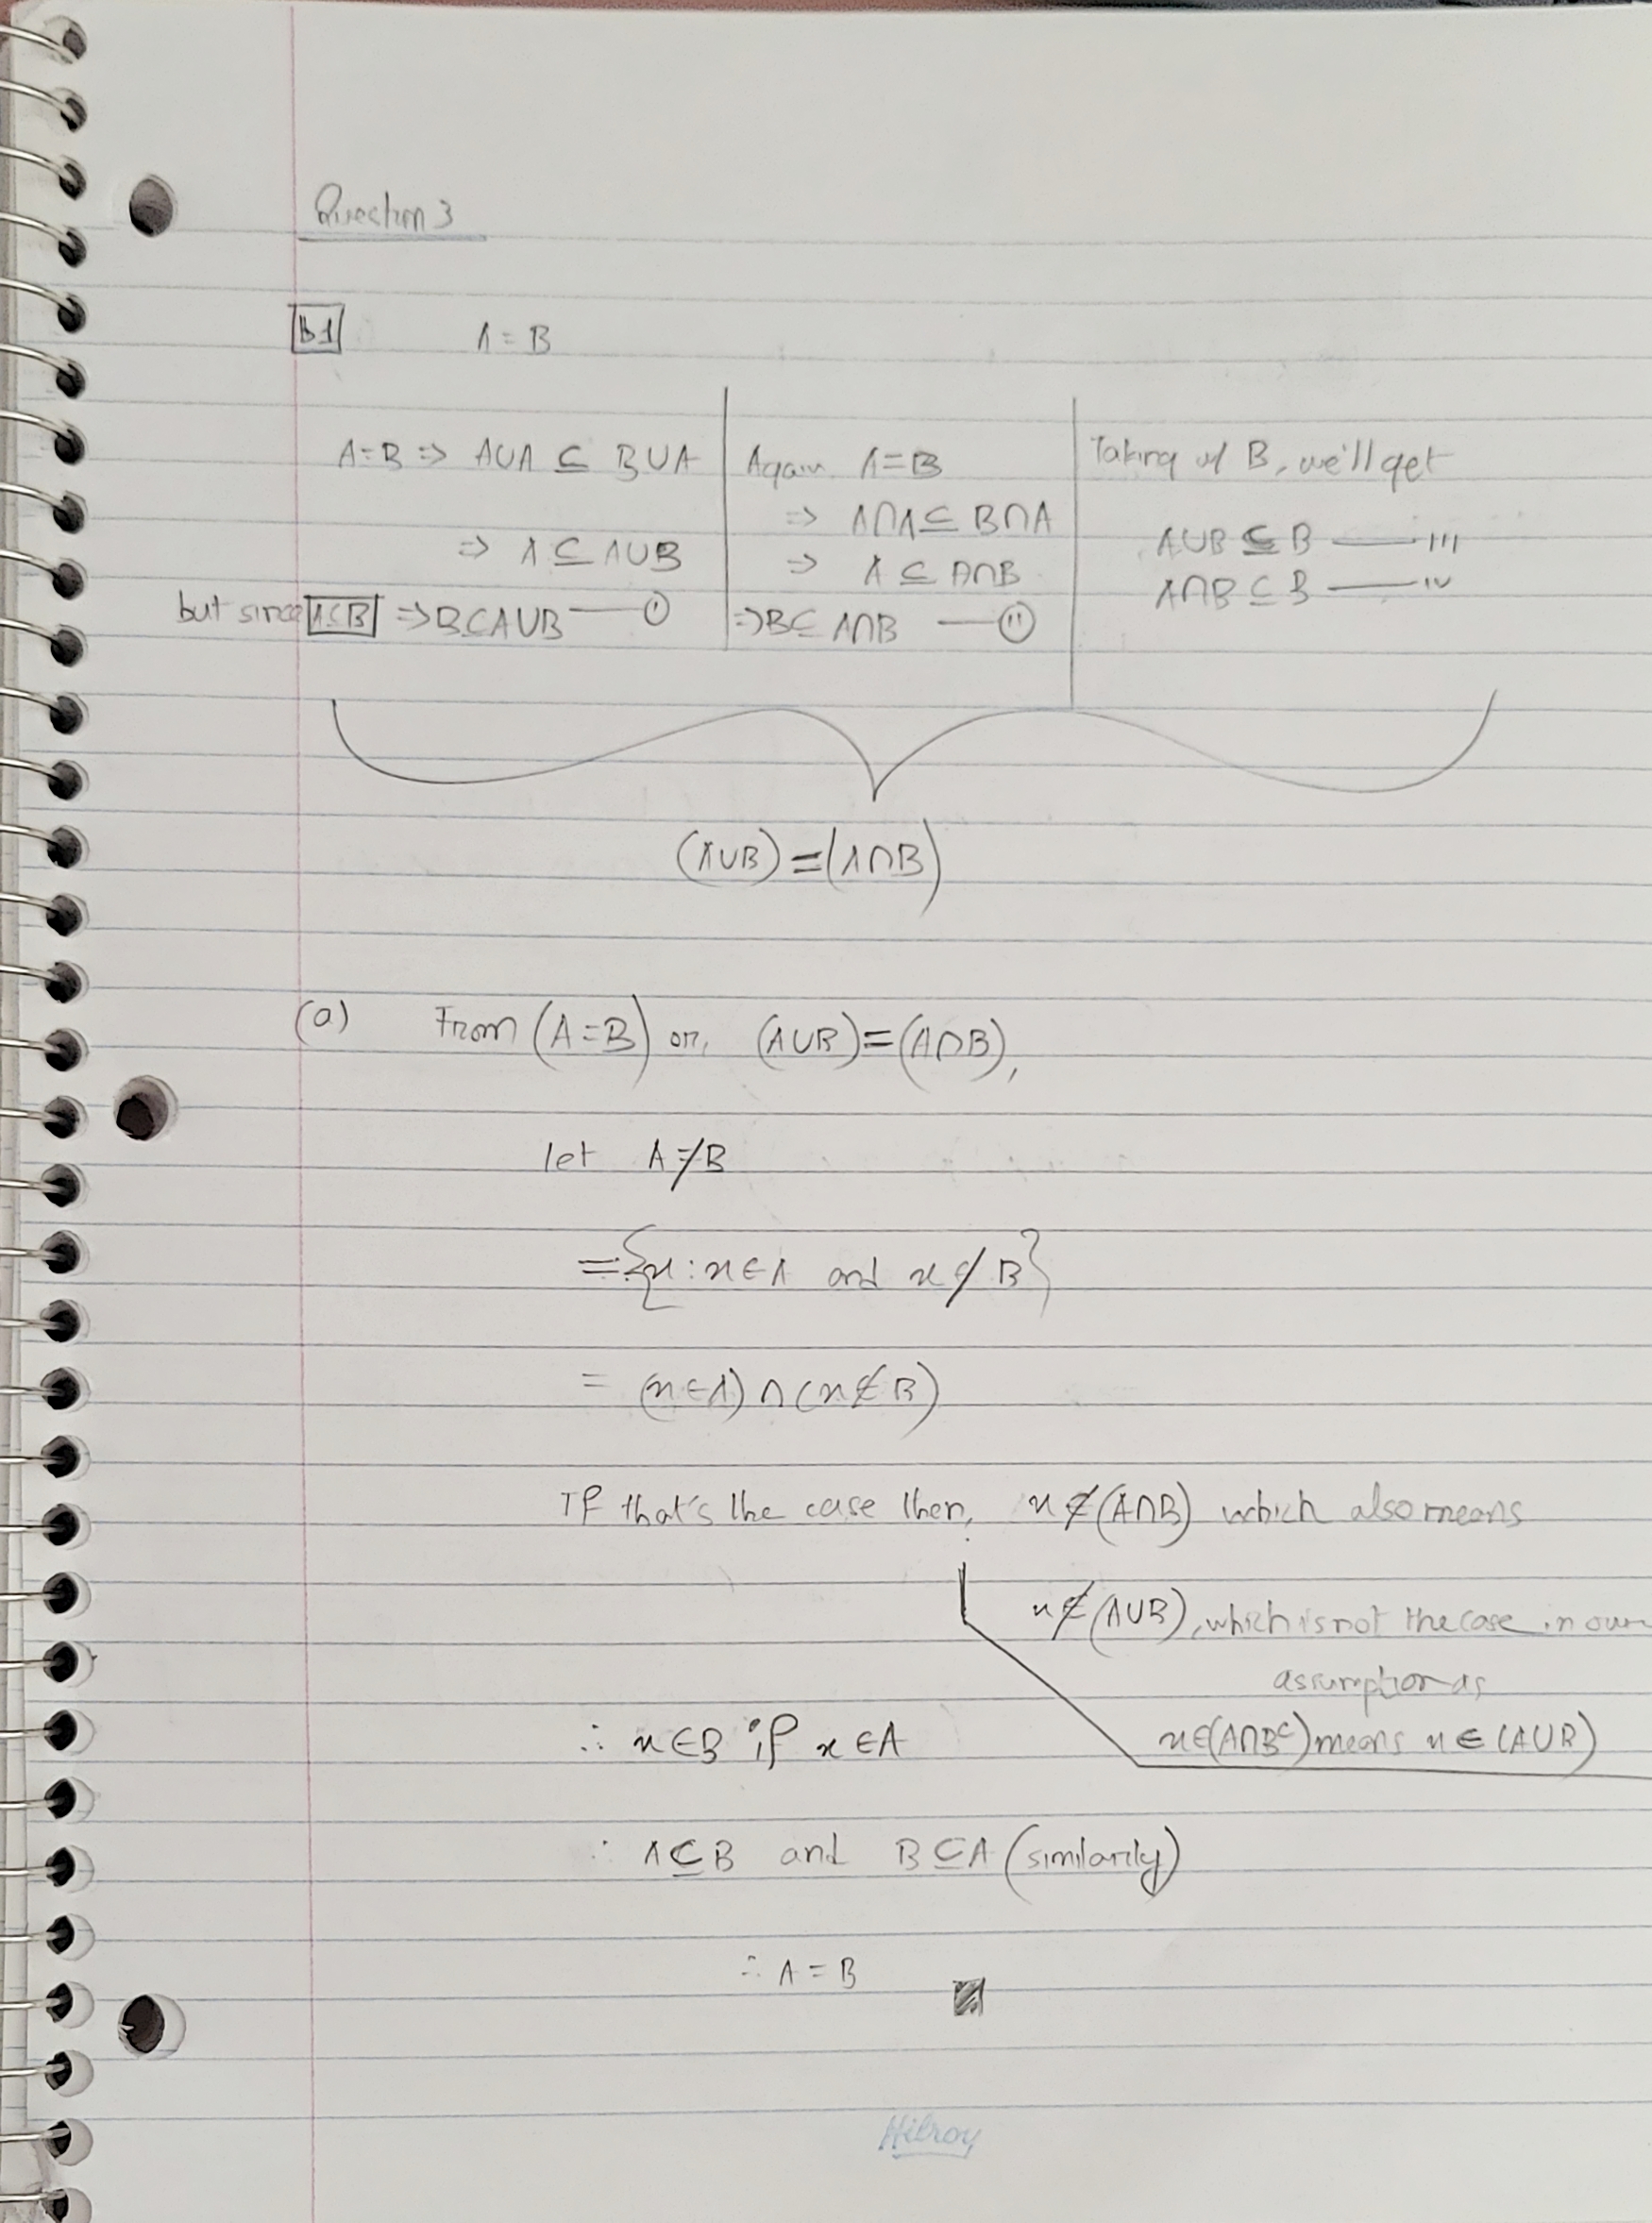 Question 3
B1 A = B
A=B => A∪A ⊆ B∪A
=> A ⊆ A∪B
but since A⊆B => B⊆A∪B —— (i)
Again A=B
=> A∩A ⊆ B∩A
=> A ⊆ A∩B
=> B⊆ A∩B —— (ii)
Taking w/ B, we'll get
A∪B ⊆ B —— iii
A∩B ⊆ B —— iv
(A∪B) = (A∩B)
(a) From (A=B) or, (A∪B)=(A∩B),
let A≠B
= {x : x∈A and x∉B}
= (x∈A) ∩ (x∉B)
If that's the case then, x∉(A∩B) which also means
x∉(A∪B), which is not the case in our
assumption as
x∈(A∩Bᶜ) means x∈(A∪B)
∴ x∈B if x∈A
∴ A⊆B and B⊆A (similarily)
∴ A = B
Hilroy